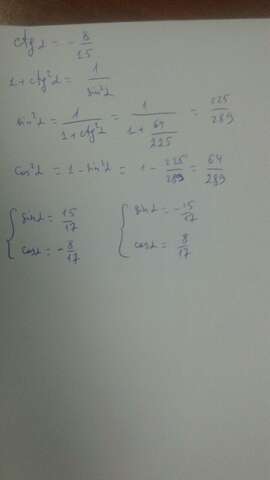 ctgα = - 8/15
1 + ctg²α = 1/sin²α
sin²α = 1/(1 + ctg²α) = 1/(1 + 64/225) = 225/289
cos²α = 1 - sin²α = 1 - 225/289 = 64/289
{ sinα = 15/17 { sinα = - 15/17
cosα = - 8/17 cosα = 8/17